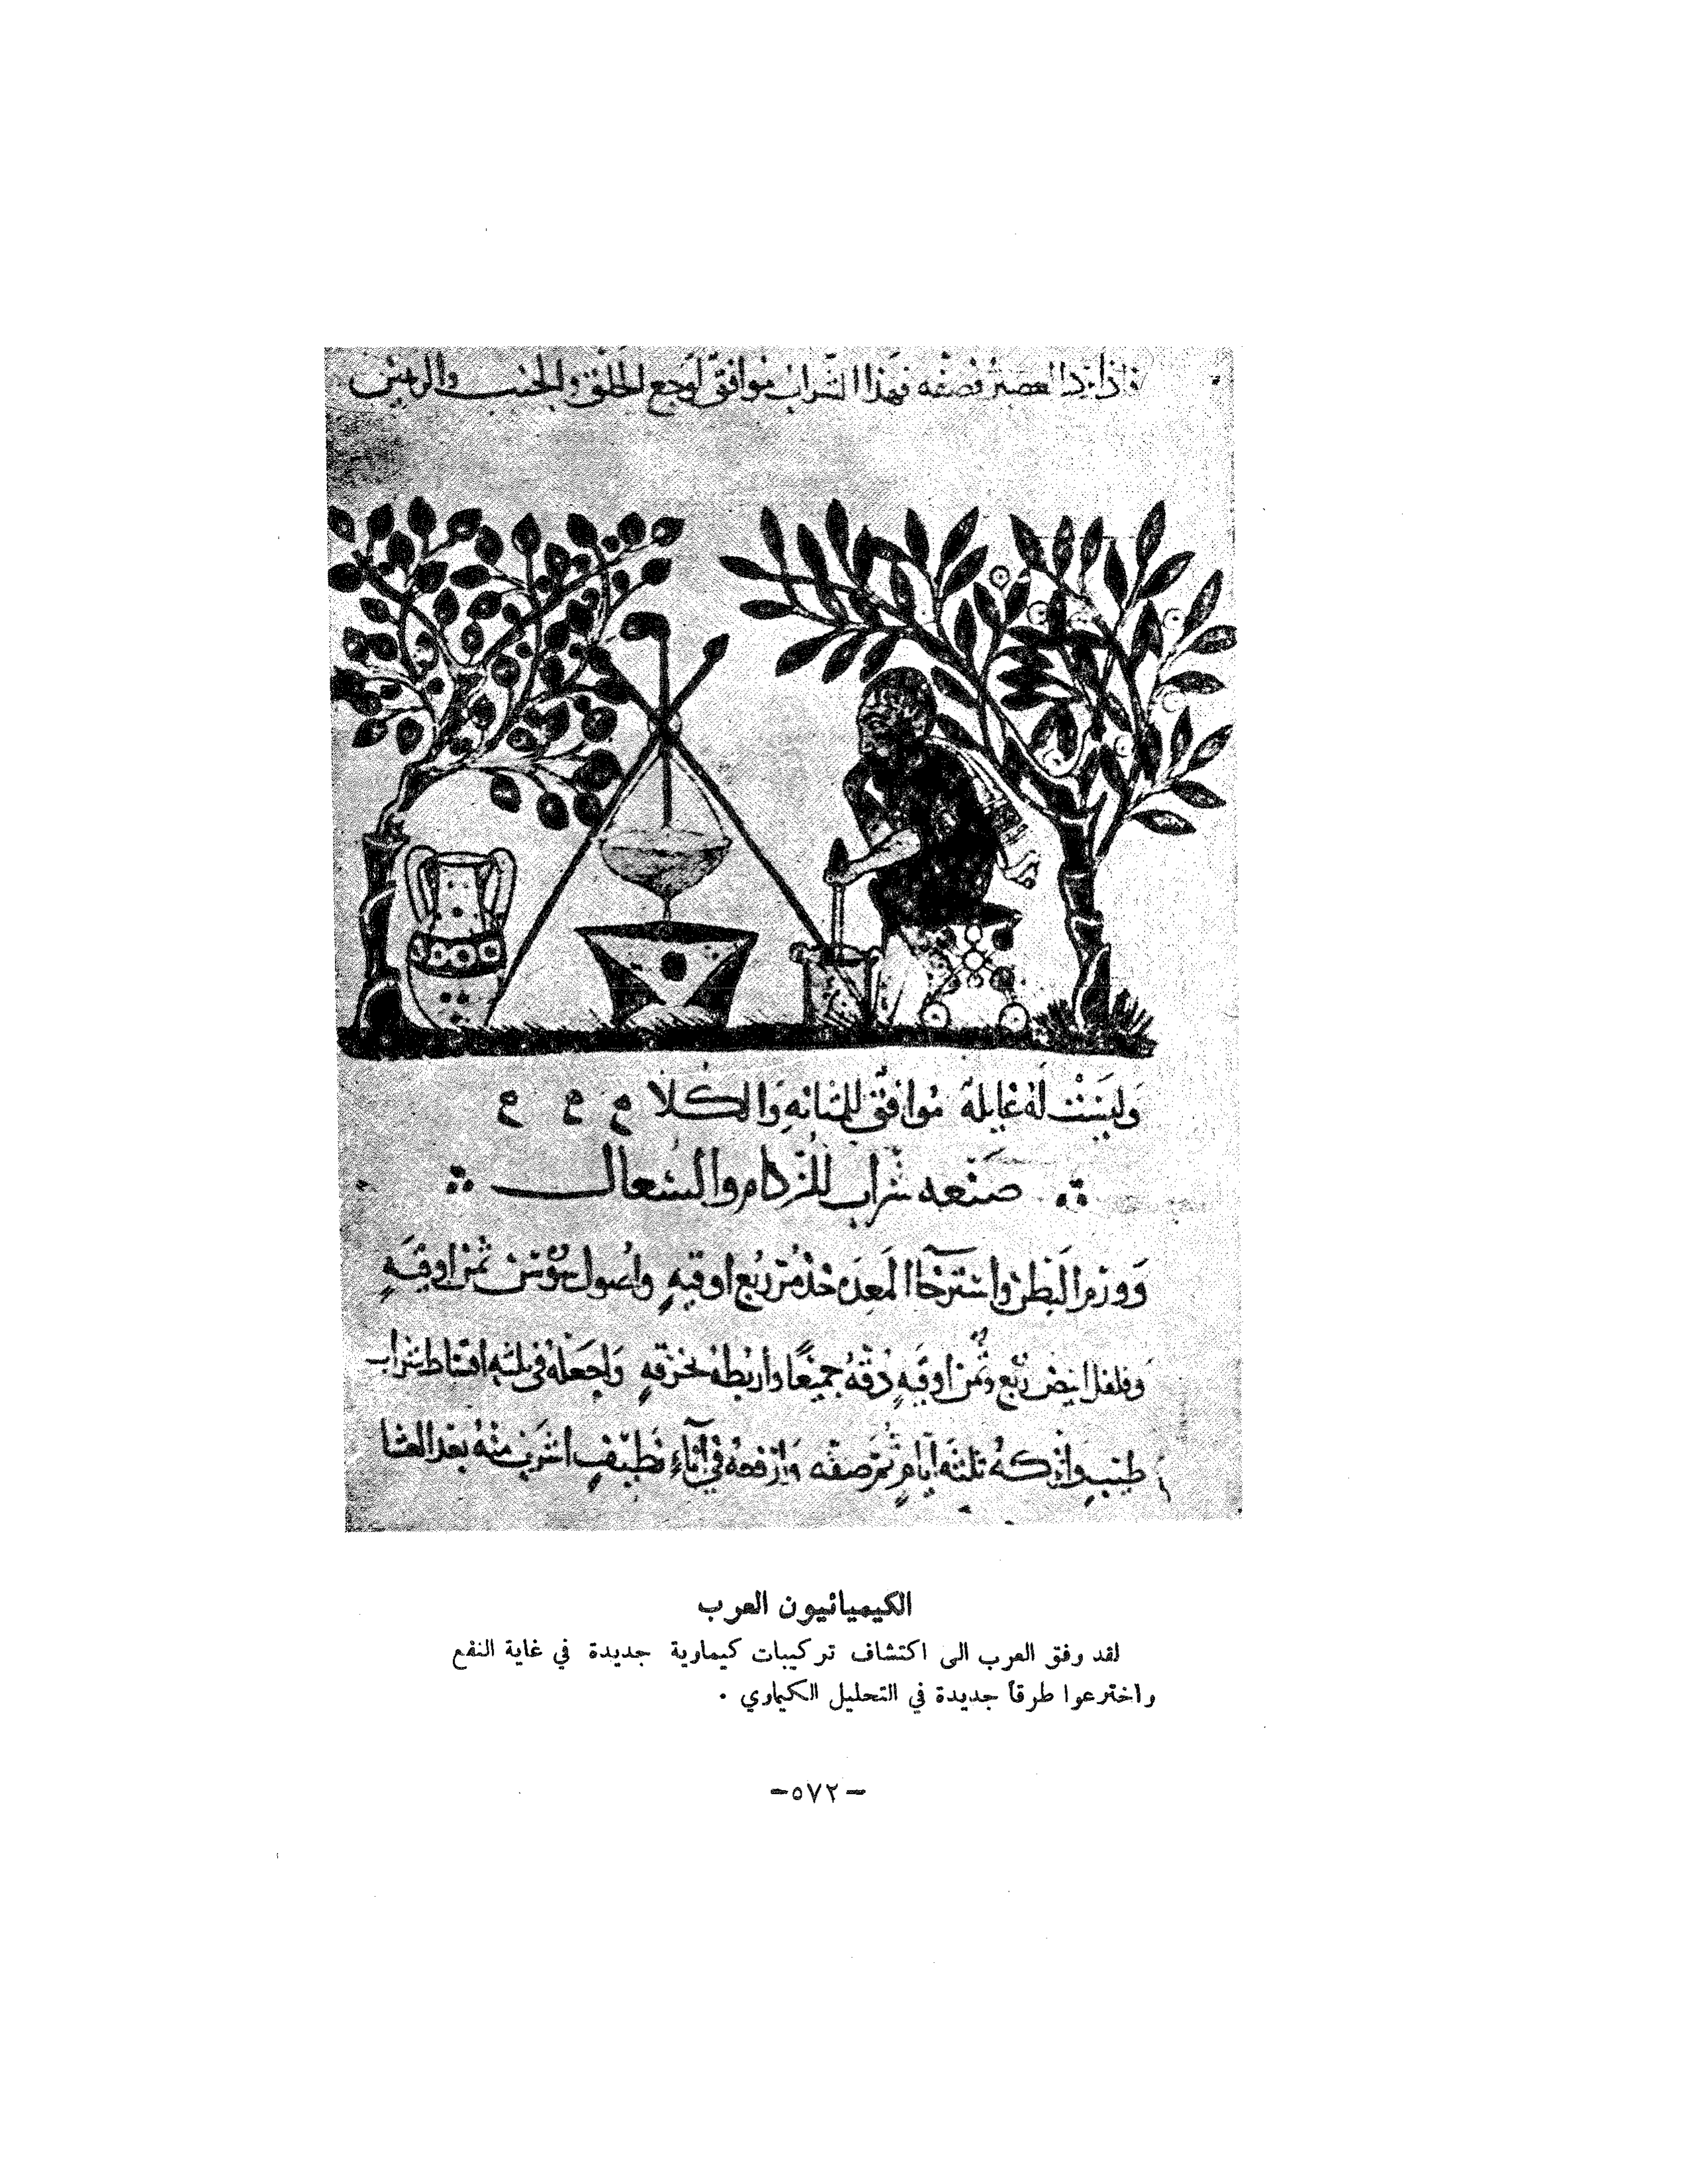 العصير فصفه فهذا الشراب موافق لوجع الحلق والجنب
وليست له غايلة موافق للمثانه والكلا
صنعه شراب للزكام والسعال
وورم البطن واسترخا المعده خذ مر ربع اوقيه واصول سوسن ثمن اوقيه
وفلفل ابيض ربع وثمن اوقيه دقه جميعا واربطه بخرقه واجعله في ثلثه اقساط شراب
طيب واتركه ثلثه ايام ثم صفه وارفعه في اناء نظيف اشرب منه بعد العشا
الكيميائيون العرب
لقد وفق العرب الى اكتشاف تركيبات كيماوية جديدة في غاية النفع
واخترعوا طرقاً جديدة في التحليل الكيماوي .
-٥٧٢-